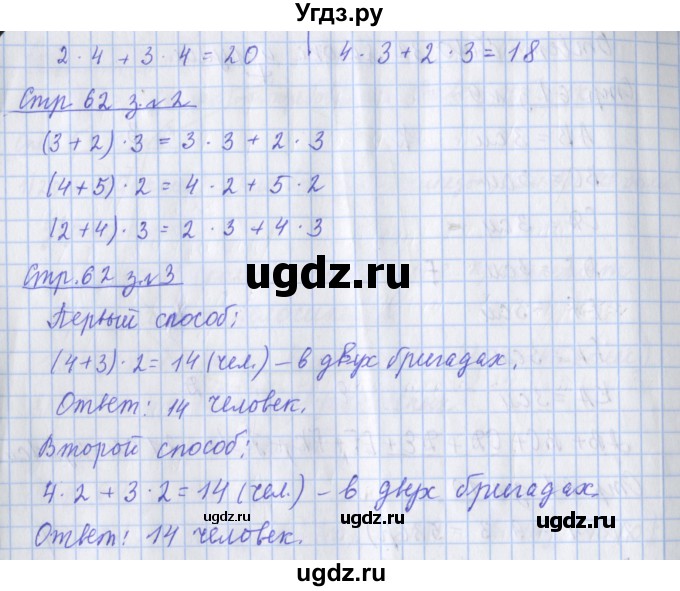 Угдз.ру
2 · 4 + 3 · 4 = 20
4 · 3 + 2 · 3 = 18
Стр. 62 з. №2
(3 + 2) · 3 = 3 · 3 + 2 · 3
(4 + 5) · 2 = 4 · 2 + 5 · 2
(2 + 4) · 3 = 2 · 3 + 4 · 3
ugdz.ru
Стр. 62 з. №3
Первый способ:
(4 + 3) · 2 = 14 (чел.) – в двух бригадах.
ugdz.ru
Ответ: 14 человек.
Второй способ:
4 · 2 + 3 · 2 = 14 (чел.) – в двух бригадах.
ugdz.ru
ugdz.ru
Ответ: 14 человек.
ugdz.ru